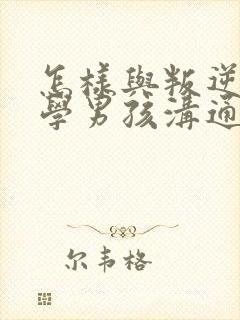 怎樣與叛逆
學男孩溝通
尔韦格